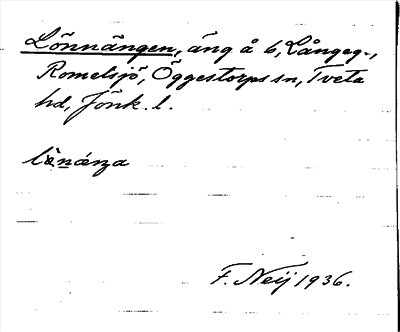 Lönnängen, äng å 6, Långeg.,
Romelsjö, Öggestorps sn, Tveta
hd, Jönk. l.
lènánza
F. Neij 1936.